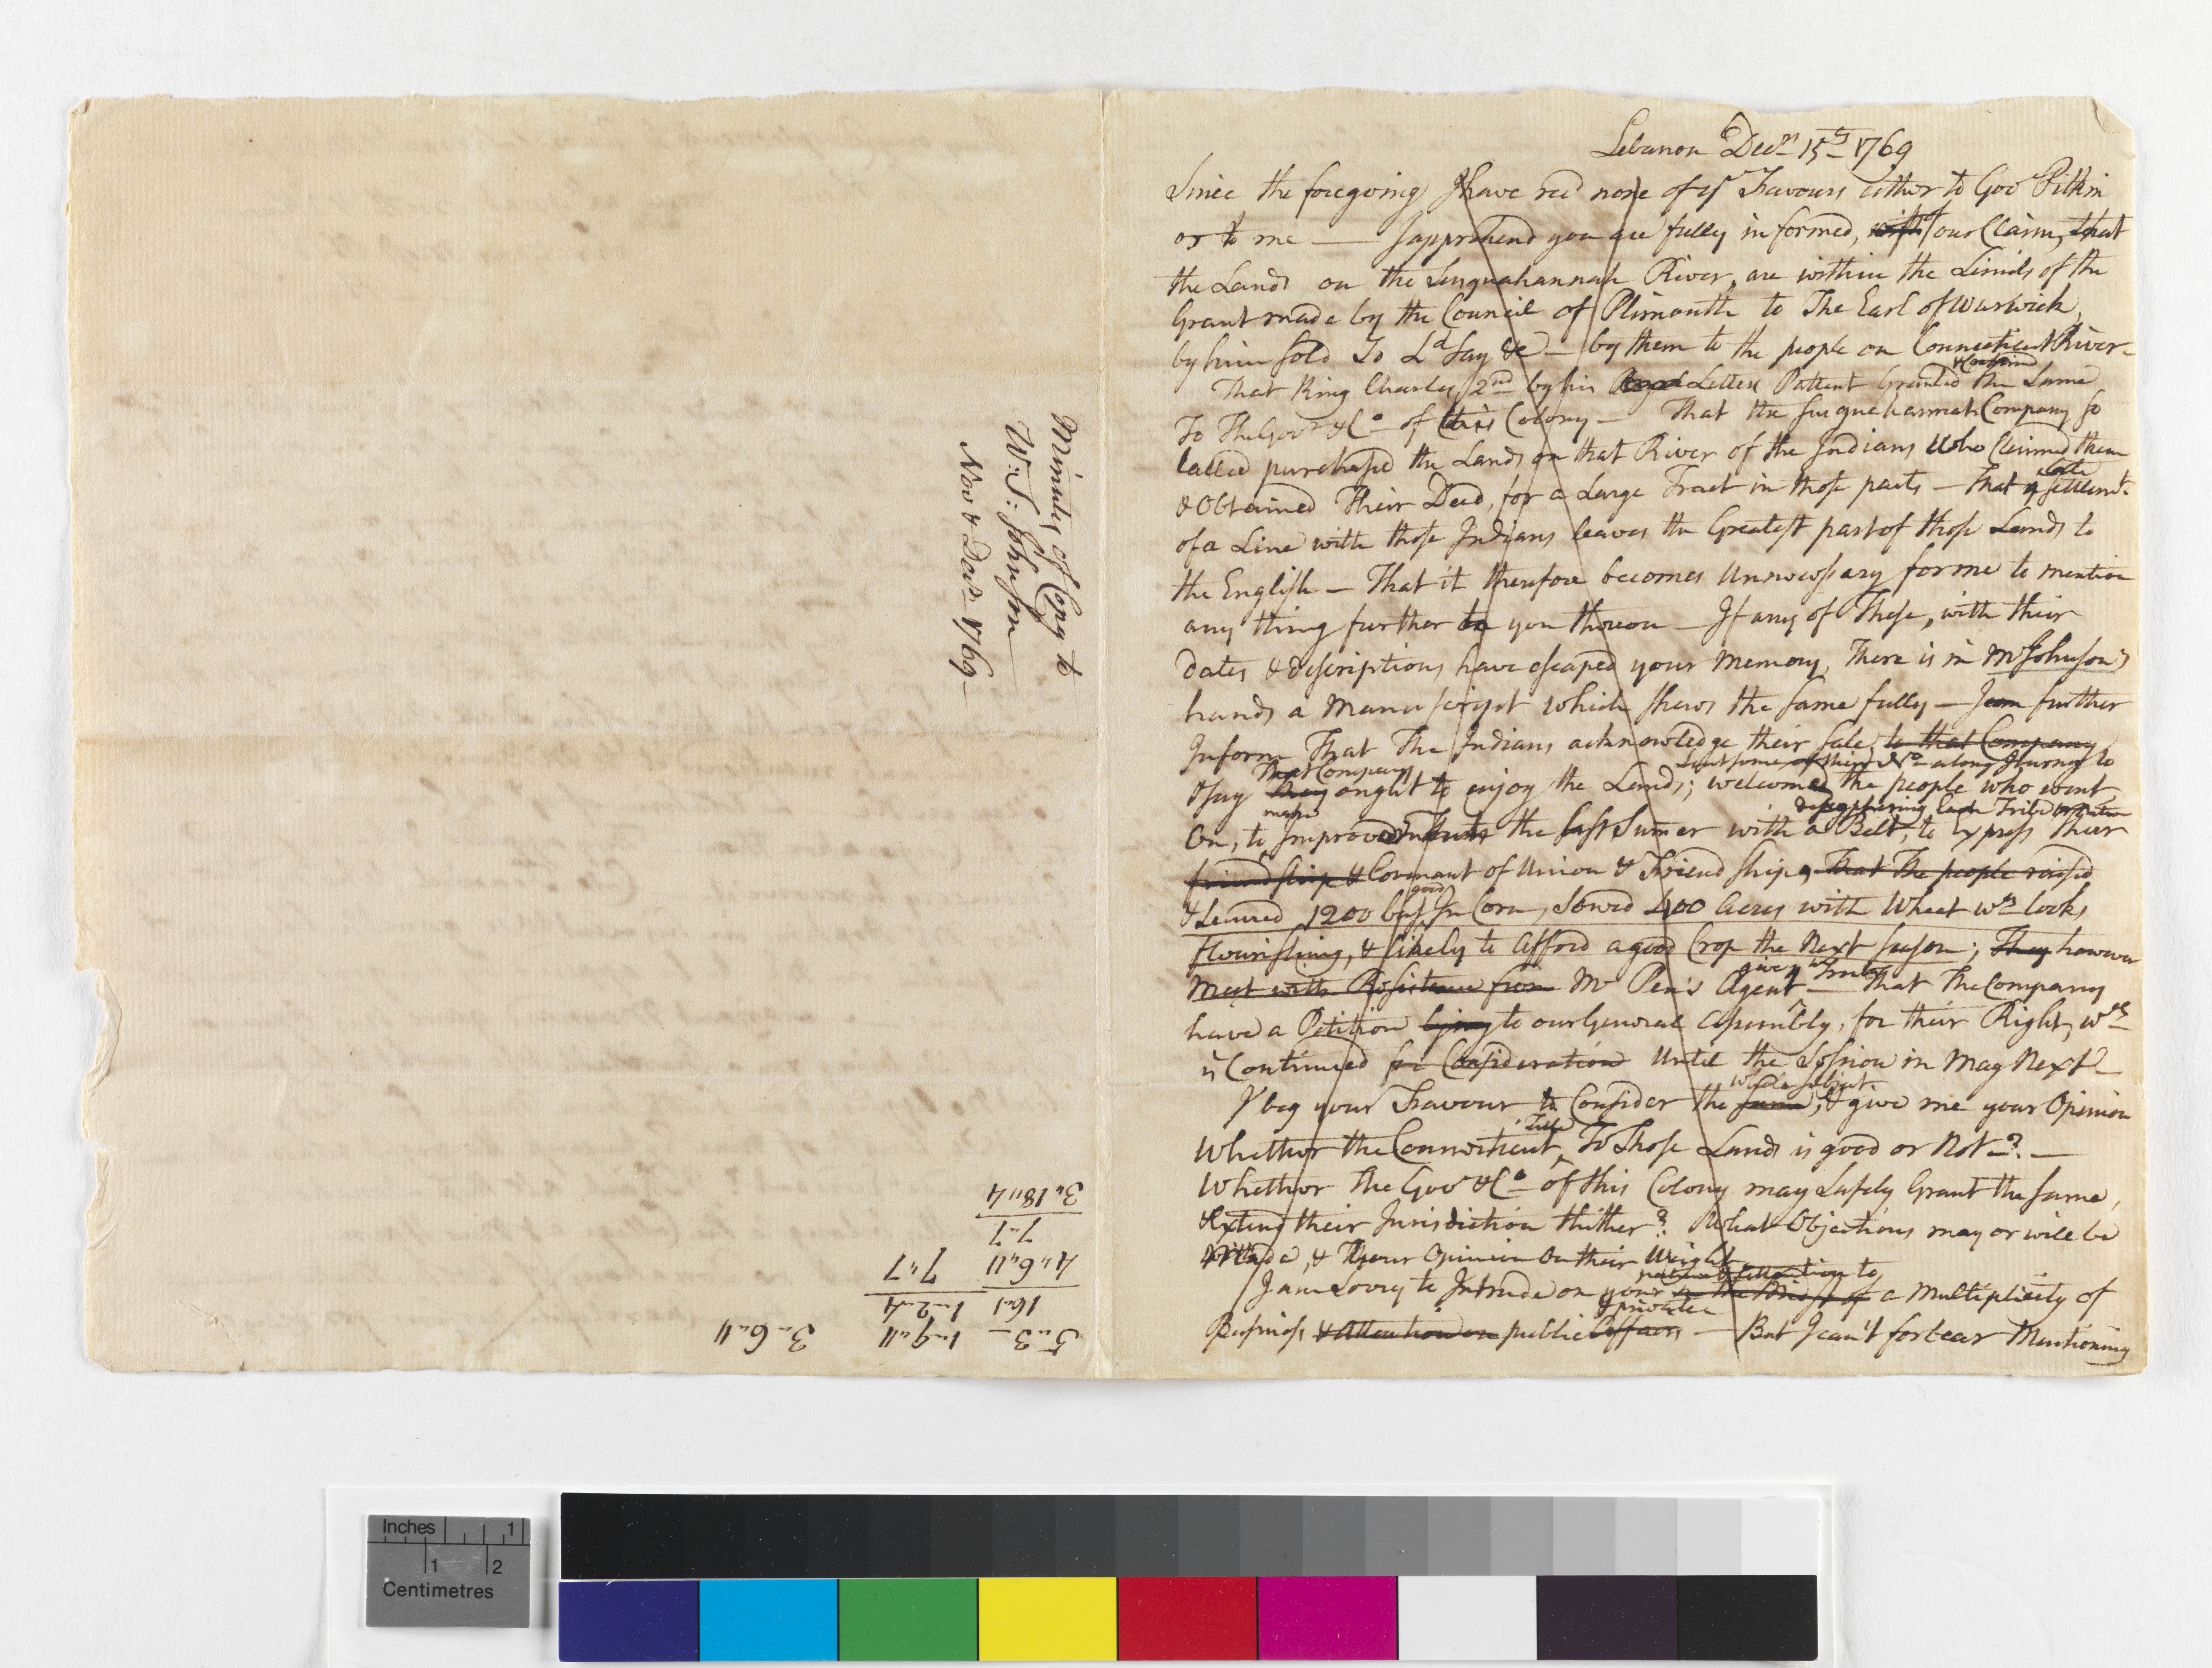 Minutes of Copy to
W. S. Johnson
Nov & Decr. 1769
5 „ 3 –
16 „ 1
4 „ 6 „ 11
7 „ 7
3 „ 18 „ 4
1 „ 9 „ 11
1 „ 2 „ 4
7 „ 7
3 „ 6 „ 11
Lebanon Decr. 15th 1769
Since the foregoing I have recd none of yr Favours either to Govr Pitkin
or to me — I apprehend you are fully informed, with of our Claim, that
the Lands on the Susquahannah River, are within the Limits of the
Grant made by the Council of Plimouth to The Earl of Warwick,
by him sold To Ld Say &c — by them to the people on Connecticut River –
& Confirmd
That King Charles 2nd by his Royal Letters Pattent Granted the Same
To The Govr & Co of this Colony — That the Susquahannah Company so
called purchased the Lands on that River of the Indians who Claimed them
late
& Obtained Their Deed, for a Large Tract in those parts — That ye settlemt
of a Line with those Indians leaves the Greatest part of those Lands to
the English — That it therefore becomes Unnecessary for me to mention
any thing further to you thereon — If any of These, with their
Dates & descriptions have escaped your Memory, There is in Mr Johnson's
hands a Manuscript which shews the same fully — I can further
Inform That The Indians acknowledge their sale to that Company
That Company Sent some of their along Journey to
& say they ought to enjoy the Lands; welcomed the people who went
make each Tribe
On, to Improvements the last Sumer with a Belt, to Express their
friendship & Covenant of Union & Friendship, That The people raised
good
& secured 1200 bus In Corn, Sowed 400 Acres with Wheat wch looks
flourishing, & likely to afford a good Crop the Next season; They however
gives ym Trouble
Meet with Resistance from Mr Pen's Agent — That The Company
have a Petition lying to our General Assembly, for their Right, wch
is Continued for Consideration Until the Session in May Next
whole subject
I beg your Favour to Consider the same, & give me your Opinion
Title
Whether the Connecticut To Those Lands is good or Not? —
Whether The Govr & Co of this Colony may Safely Grant the same,
& Extend their Jurisdiction thither? What Objections may or will be
Made, & Your Opinion On their Weight
attention to
I am Sorry to Intrude on your in the Midst of a Multiplicity of
& private
Business & Attention on public Affairs — But I can't forbear Mentioning
Inches
1
1
2
Centimetres